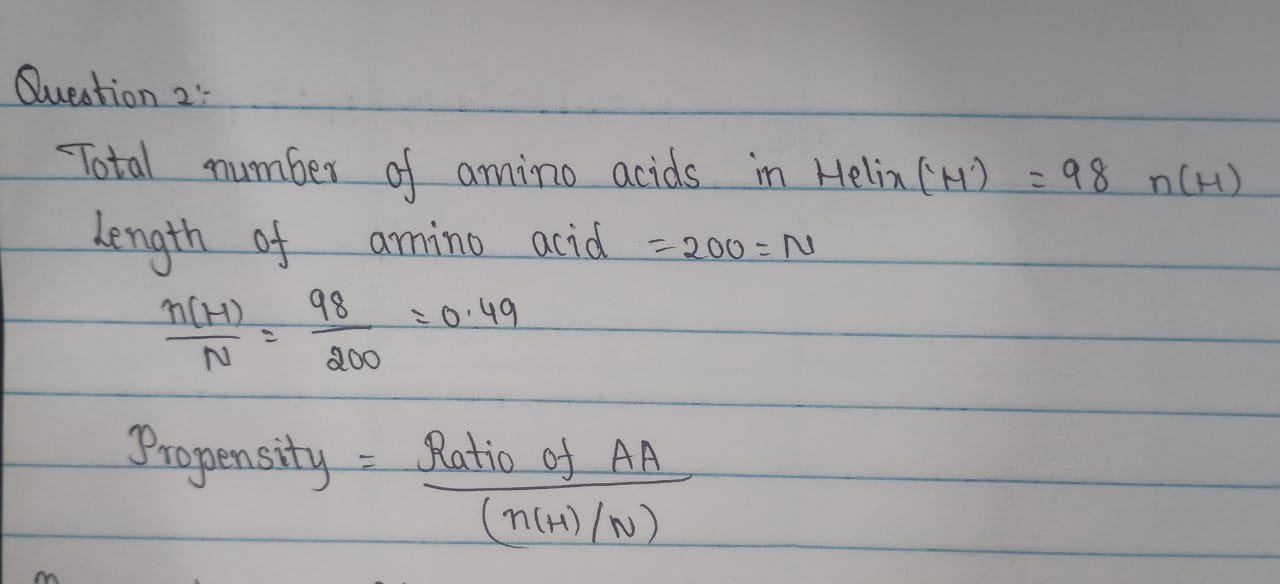 Question 2:-
Total number of amino acids in Helix ('H') = 98 n(H)
Length of amino acid = 200 = N
n(H)/N = 98/200 = 0.49
Propensity = Ratio of AA / (n(H)/N)